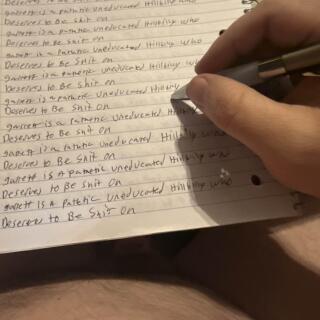 Deserves to Be Shit on
garett is a patetic uneducated Hillbily who
Deserves to Be Shit on
garett is a patetic uneducated Hillbily who
Deserves to Be Shit on
garett is a patetic uneducated Hillbily who
Deserves to Be Shit on
garett is a patetic uneducated Hillbily who
Deserves to Be Shit on
garett is a patetic uneducated Hillbily
Deserves to Be Shit On
garett is a patetic uneducated
Deserves to Be Shit on
garett is a patetic uneducated Hillbily who
Deserves to Be Shit on
garett is A patetic uneducated Hillbily
Deserves to Be Shit On
garett IS A Patetic uneducated Hillbily who
Deserves to Be Shit On